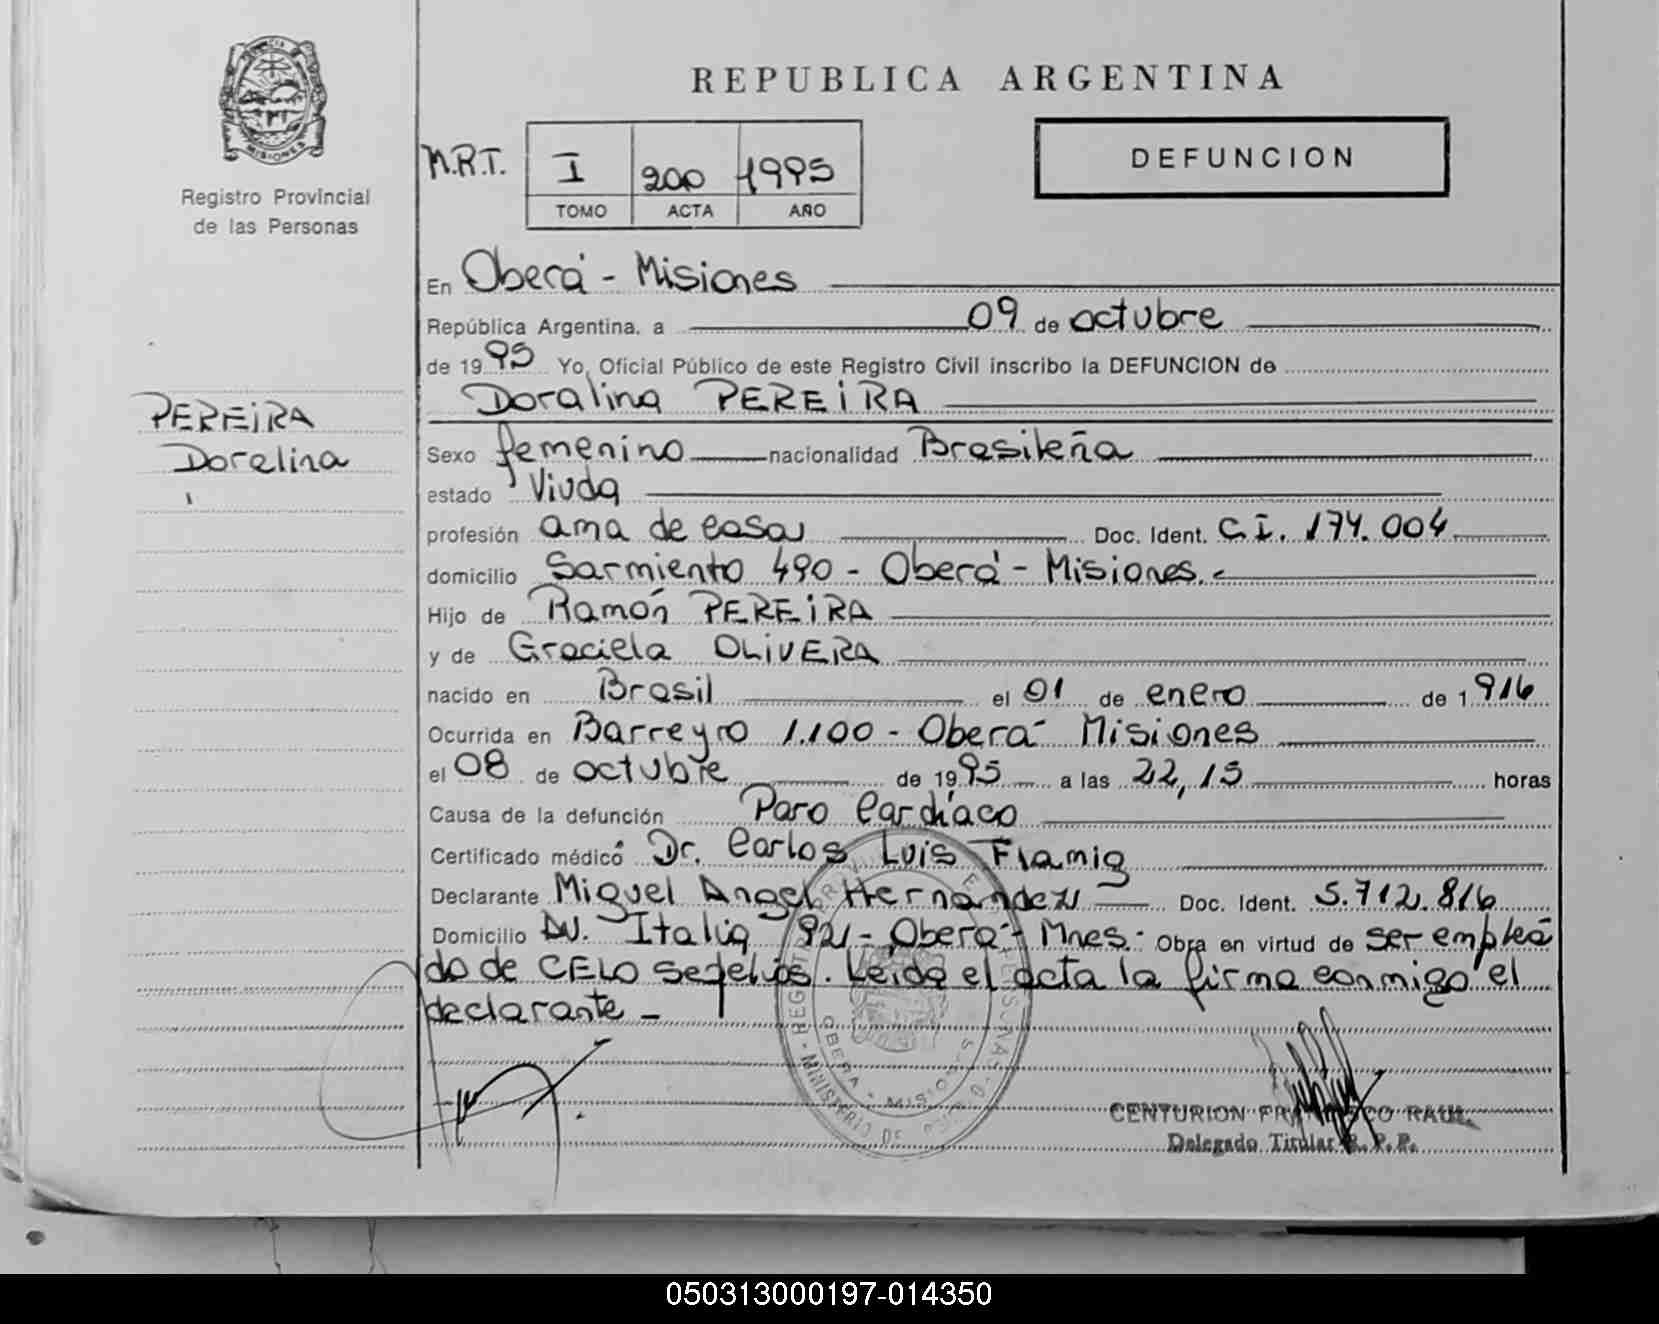 REPUBLICA ARGENTINA
MISIONES
Registro Provincial
de las Personas
N.R.T.
I 200 1995
TOMO ACTA AÑO
DEFUNCION
En Oberá - Misiones
República Argentina, a 09 de octubre
de 1995 Yo, Oficial Público de este Registro Civil inscribo la DEFUNCION de
Doralina PEREIRA
PEREIRA
Doralina
Sexo femenino nacionalidad Brasileña
estado Viuda
profesión ama de casa Doc. Ident. C.I. 174.004
domicilio Sarmiento 490 - Oberá - Misiones.
Hijo de Ramón PEREIRA
y de Graciela OLIVERA
nacido en Brasil el 01 de enero de 1916
Ocurrida en Barreyro 1.100 - Oberá Misiones
el 08 de octubre de 1995 a las 22,15 horas
Causa de la defunción Paro Cardíaco
Certificado médico Dr. Carlos Luis Flamig
Declarante Miguel Angel Hernandez Doc. Ident. 5.712.816
Domicilio Av. Italia 921 - Oberá - Mnes. Obra en virtud de ser emplea
do de CELO sepelios. Leída el acta la firma conmigo el
declarante -
OBERA - MISIONES
CENTURION FRANCISCO RAUL
Delegado Titular R. P. P.
050313000197-014350